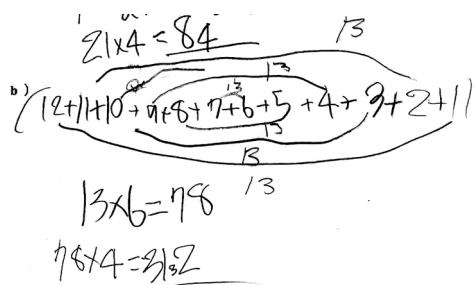 21x4=84
13
13
b) (12+11+10+9+8+7+6+5+4+3+2+1)
13
13
13
13
13x6=78
78x4=312